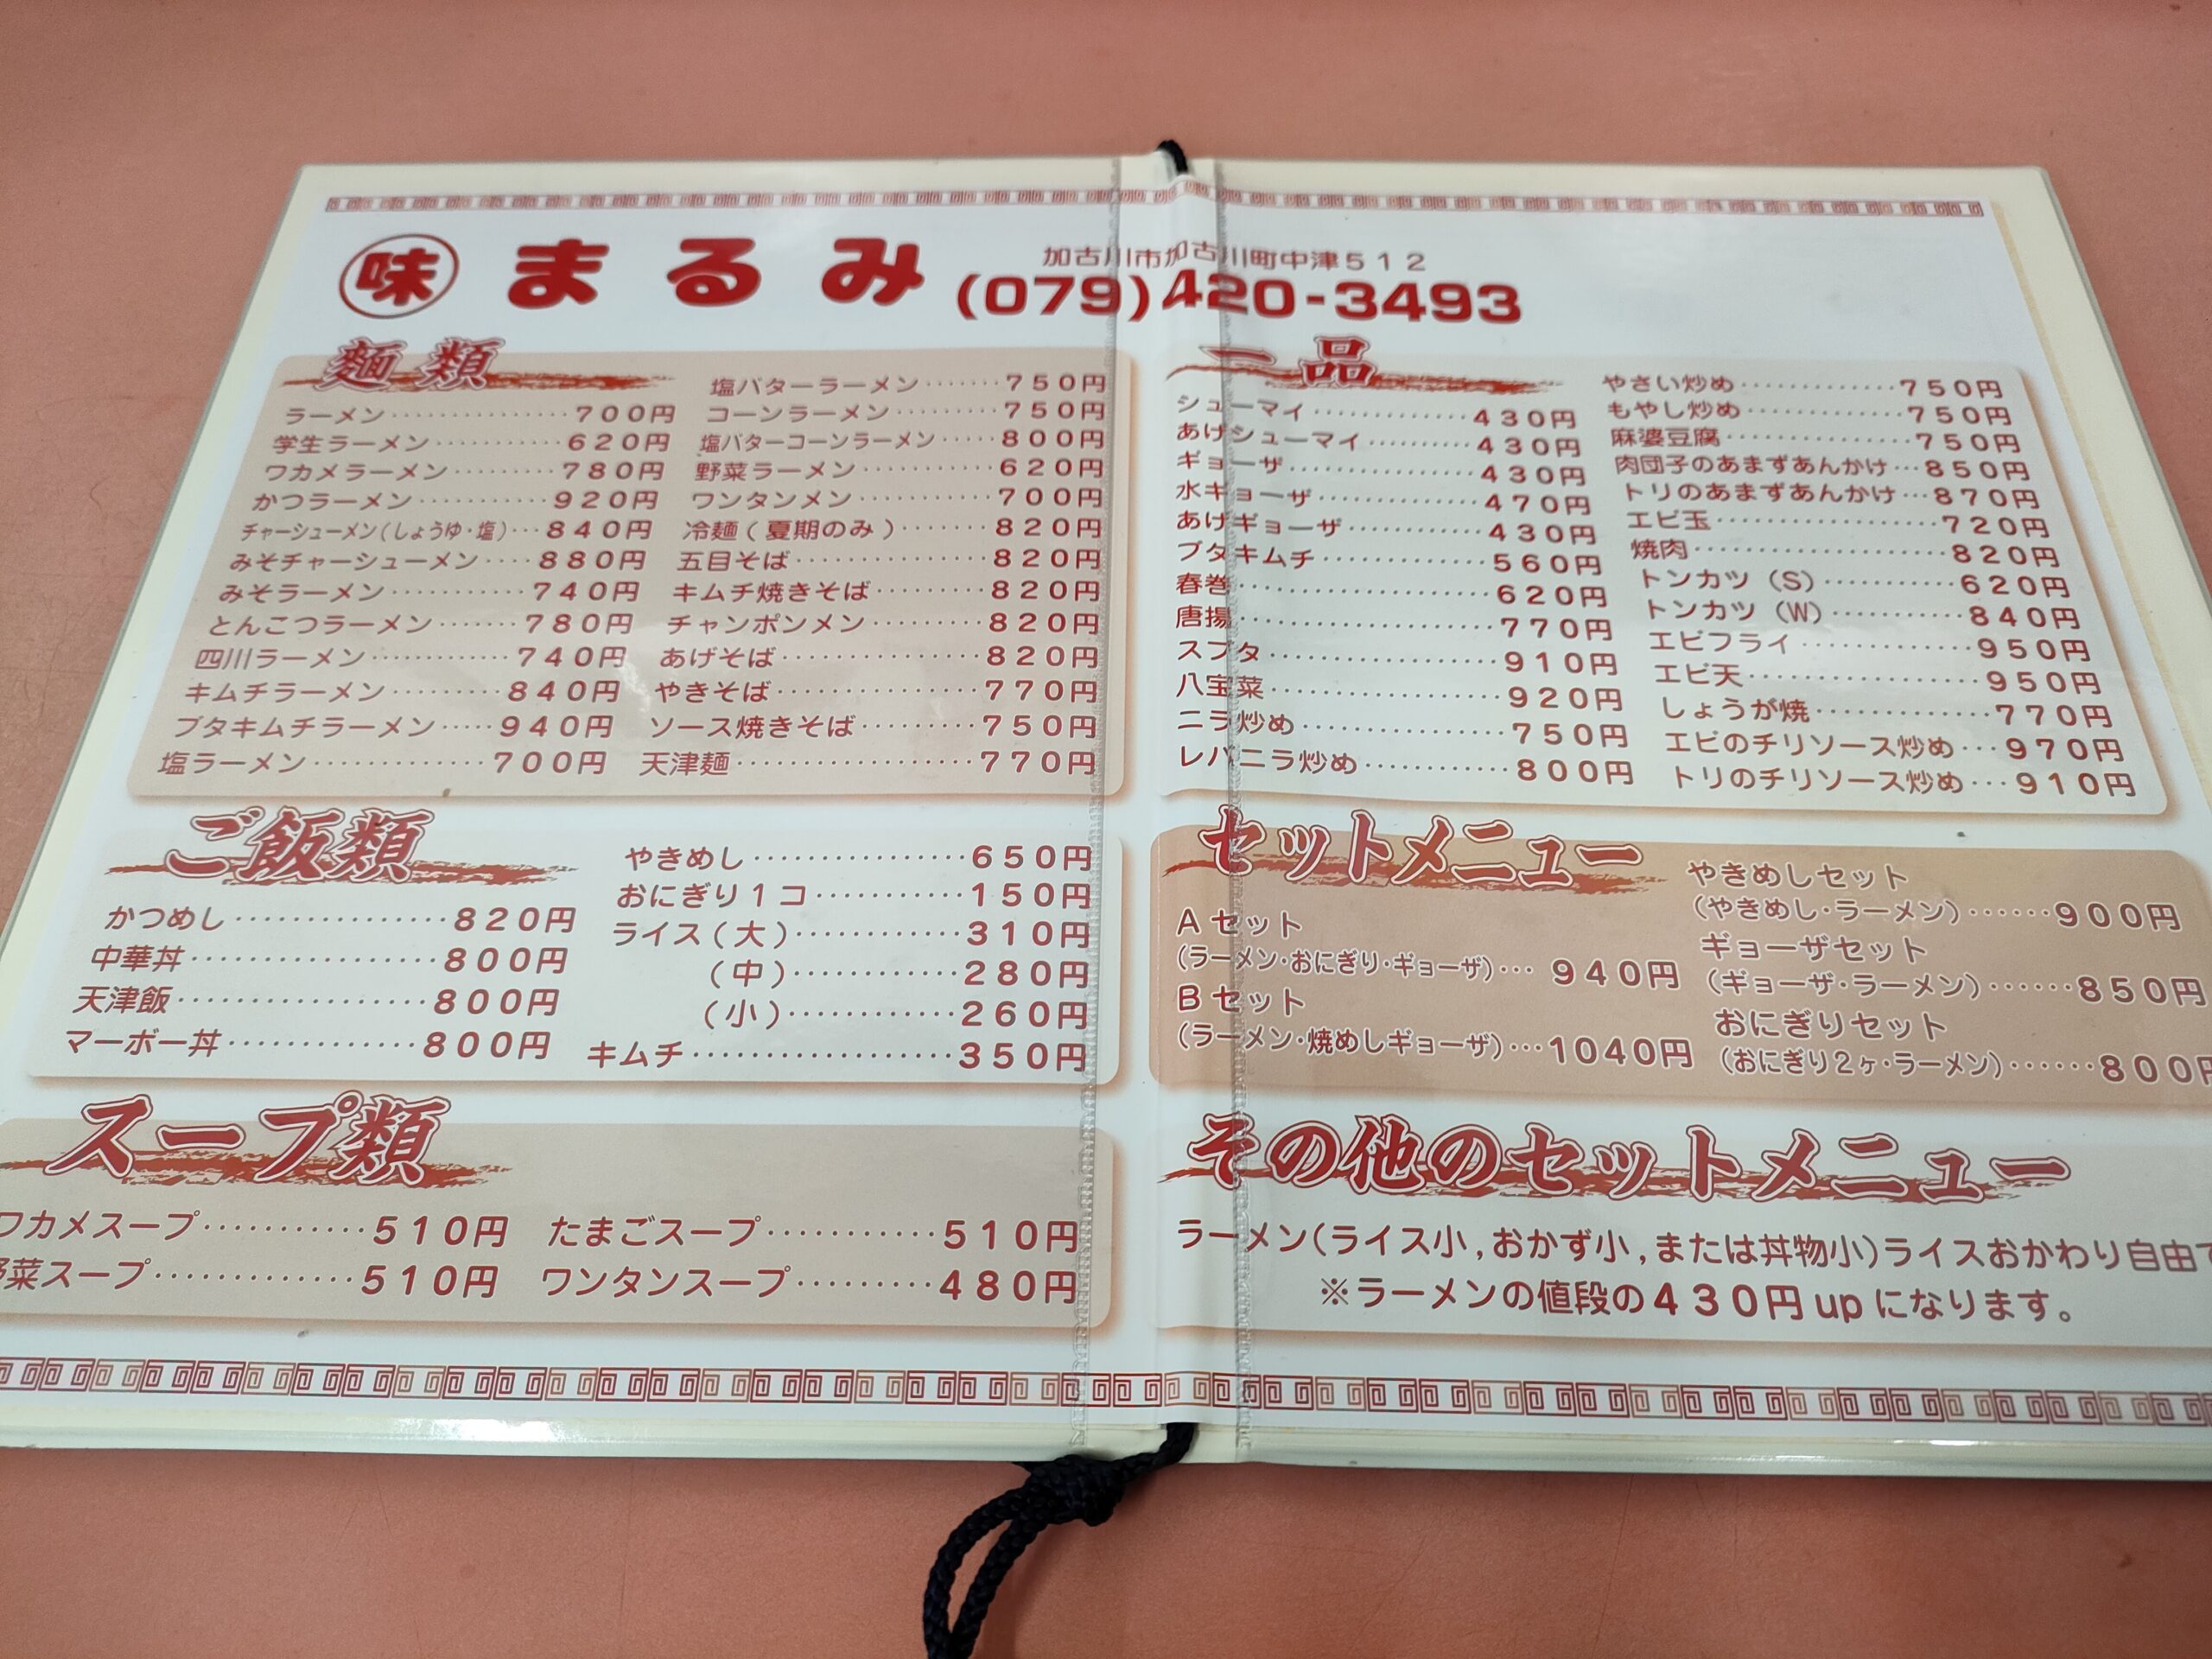 味 まるみ
加古川市加古川町中津512
(079)420-3493
麺類
ラーメン……………700円
学生ラーメン…………620円
ワカメラーメン………780円
かつラーメン…………920円
チャーシューメン(しょうゆ・塩)…840円
みそチャーシューメン…880円
みそラーメン…………740円
とんこつラーメン……780円
四川ラーメン…………740円
キムチラーメン………840円
ブタキムチラーメン…940円
塩ラーメン……………700円
塩バターラーメン……750円
コーンラーメン………750円
塩バターコーンラーメン…800円
野菜ラーメン…………620円
ワンタンメン…………700円
冷麺(夏期のみ)……820円
五目そば………………820円
キムチ焼きそば………820円
チャンポンメン………820円
あげそば………………820円
やきそば………………770円
ソース焼きそば………750円
天津麺…………………770円
ご飯類
かつめし………………820円
中華丼…………………800円
天津飯…………………800円
マーボー丼……………800円
やきめし………………650円
おにぎり1コ…………150円
ライス(大)…………310円
(中)…………280円
(小)…………260円
キムチ…………………350円
スープ類
ワカメスープ…………510円
菜スープ……………510円
たまごスープ…………510円
ワンタンスープ………480円
一品
シューマイ……………430円
あげシューマイ………430円
ギョーザ………………430円
水ギョーザ……………470円
あげギョーザ…………430円
ブタキムチ……………560円
春巻……………………620円
唐揚……………………770円
スブタ…………………910円
八宝菜…………………920円
ニラ炒め………………750円
レバニラ炒め…………800円
やさい炒め……………750円
もやし炒め……………750円
麻婆豆腐………………750円
肉団子のあまずあんかけ…850円
トリのあまずあんかけ…870円
エビ玉…………………720円
焼肉……………………820円
トンカツ(S)…………620円
トンカツ(W)…………840円
エビフライ……………950円
エビ天…………………950円
しょうが焼……………770円
エビのチリソース炒め…970円
トリのチリソース炒め…910円
セットメニュー
Aセット
(ラーメン・おにぎり・ギョーザ)…940円
Bセット
(ラーメン・焼めしギョーザ)…1040円
やきめしセット
(やきめし・ラーメン)……900円
ギョーザセット
(ギョーザ・ラーメン)……850円
おにぎりセット
(おにぎり2ヶ・ラーメン)……800円
その他のセットメニュー
ラーメン(ライス小,おかず小,または丼物小)ライスおかわり自由
※ラーメンの値段の430円upになります。